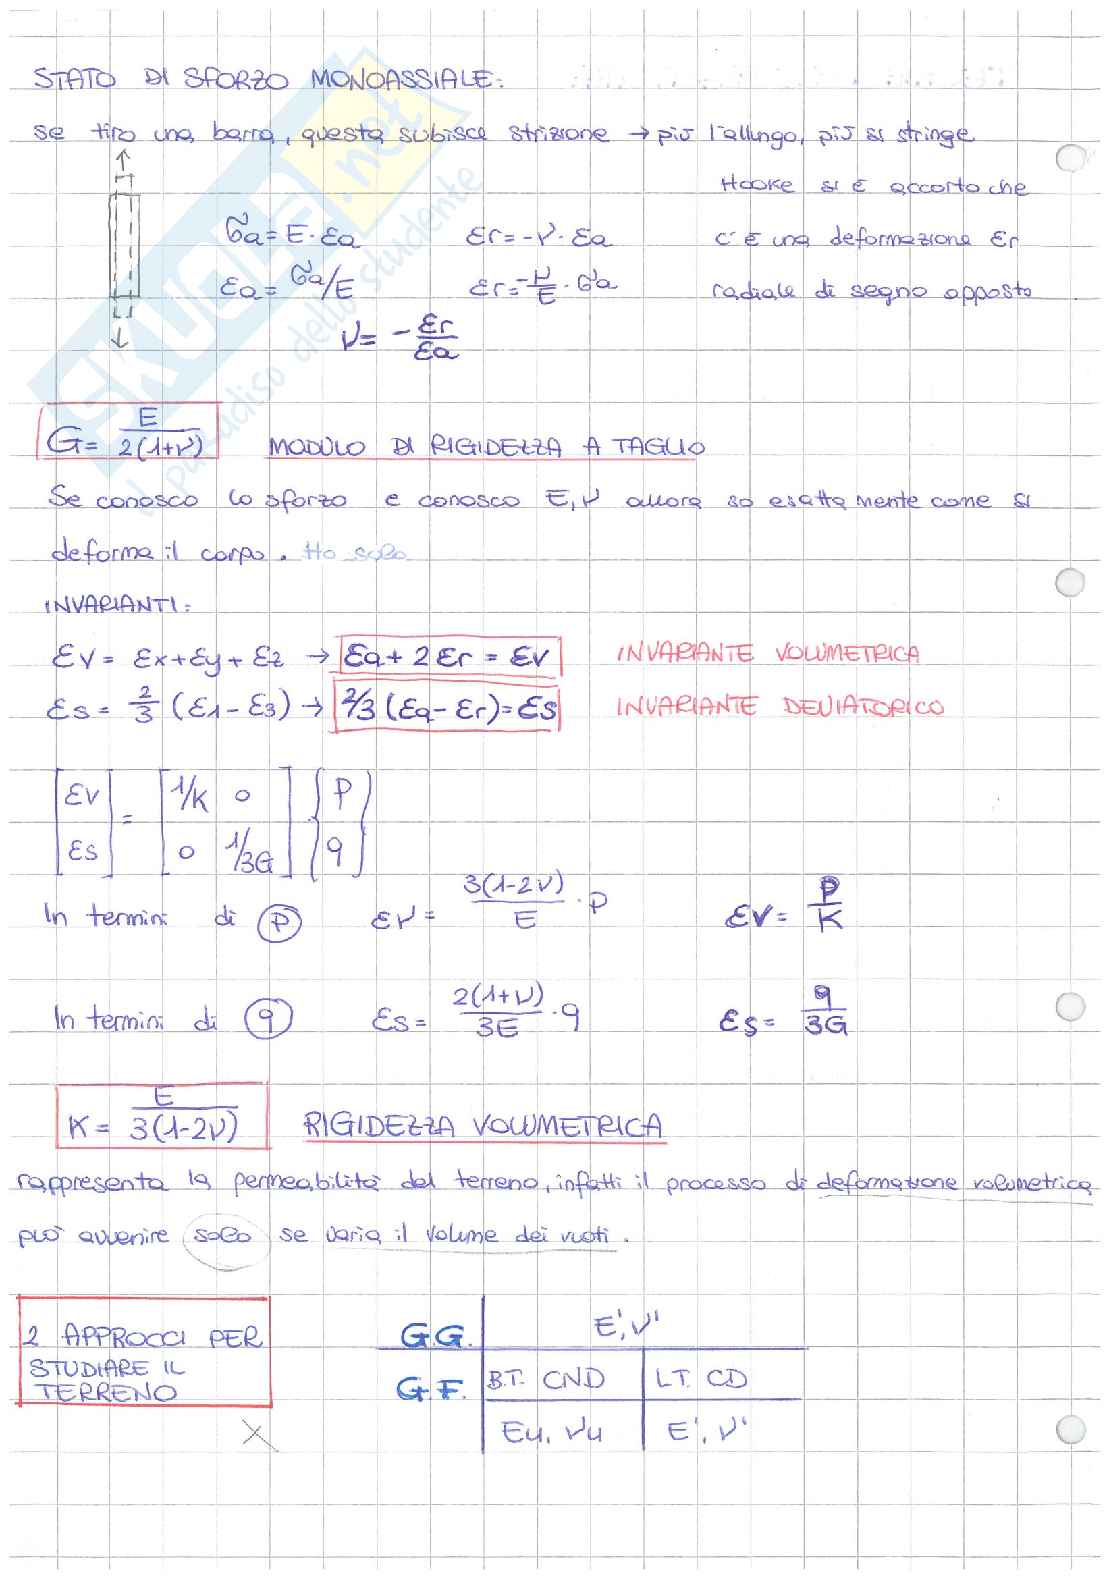 STATO DI SFORZO MONOASSIALE:
se tiro una barra, questa subisce strizione → più l'allungo, più si stringe
Hooke si è accorto che
σa = E · εa εr = -ν · εa c'è una deformazione εr
εa = σa/E εr = -ν/E · σ'a radiale di segno opposto
ν = - εr/εa
G = E/2(1+ν) MODULO DI RIGIDEZZA A TAGLIO
Se conosco lo sforzo e conosco E, ν allora so esattamente come si
deforma il corpo. Ho solo
INVARIANTI:
εv = εx + εy + εz → εa + 2εr = εv INVARIANTE VOLUMETRICA
εs = 2/3 (ε1 - ε3) → 2/3 (εa - εr) = εs INVARIANTE DEVIATORICO
[εv εs] = [1/K 0 0 1/3G] · {P q}
In termini di P εv = 3(1-2ν)/E · P εv = P/K
In termini di q εs = 2(1+ν)/3E · q εs = q/3G
K = E/3(1-2ν) RIGIDEZZA VOLUMETRICA
rappresenta la permeabilità del terreno, infatti il processo di deformazione volumetrica
può avvenire solo se varia il volume dei vuoti.
2 APPROCCI PER
STUDIARE IL
TERRENO
G.G. E', ν'
G.F. B.T. CND L.T. CD
Eu, νu E', ν'
SKUOLA.net
il paradiso dello studente